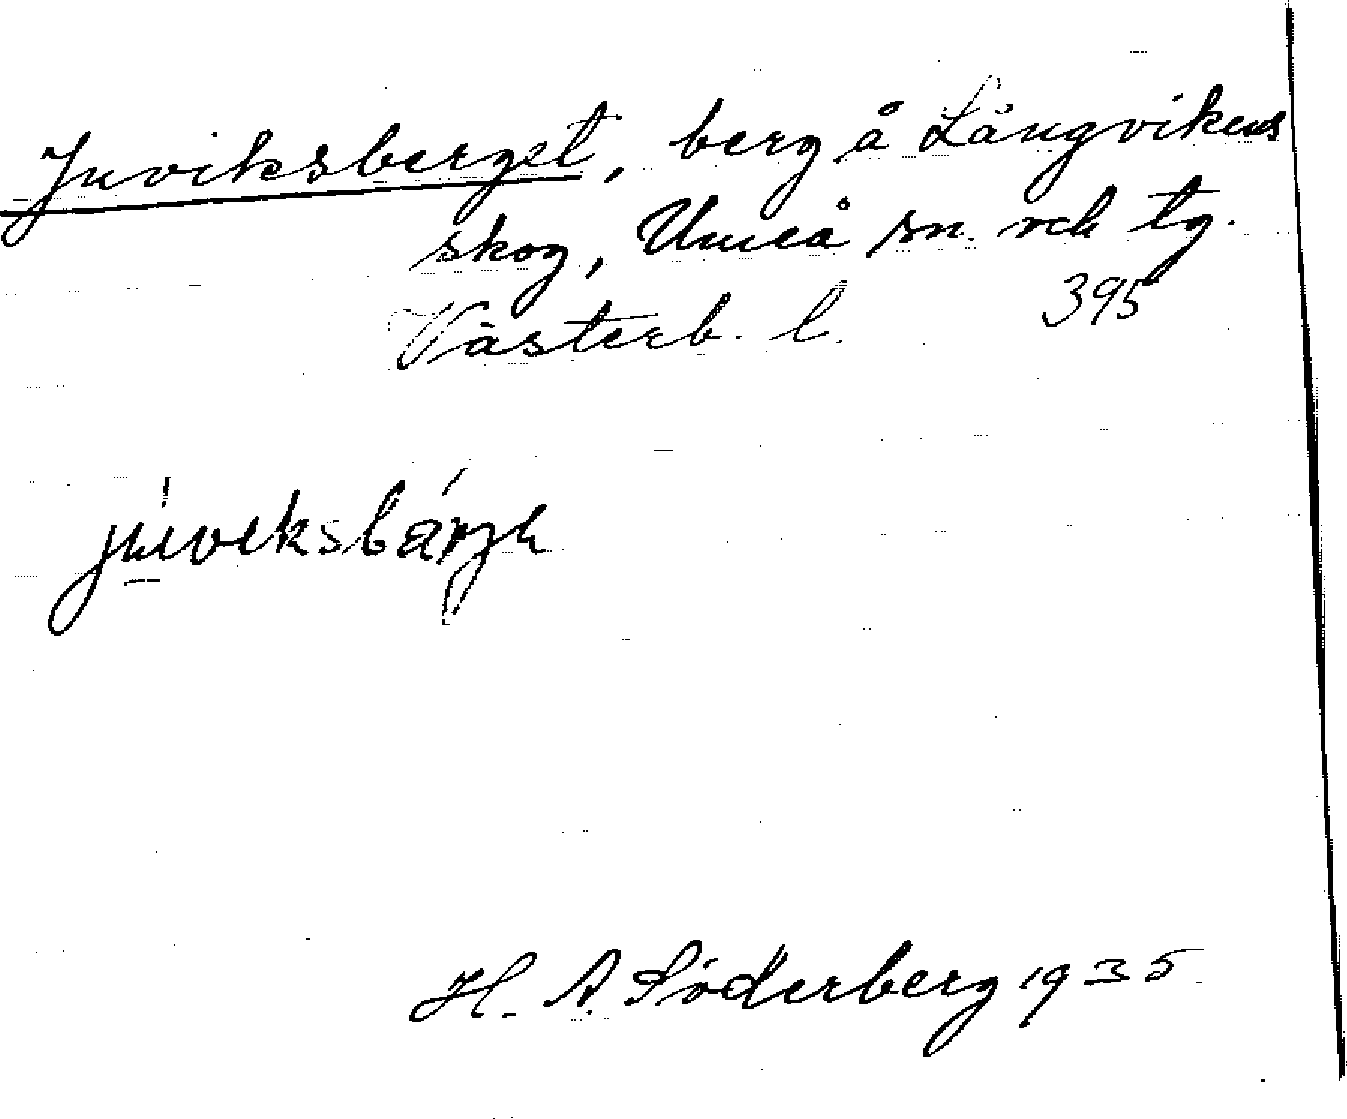 Juviksberget, berg å Långvikens
skog, Umeå sn. och tg.
Västerb. l. 395
H. A. Söderberg 1935